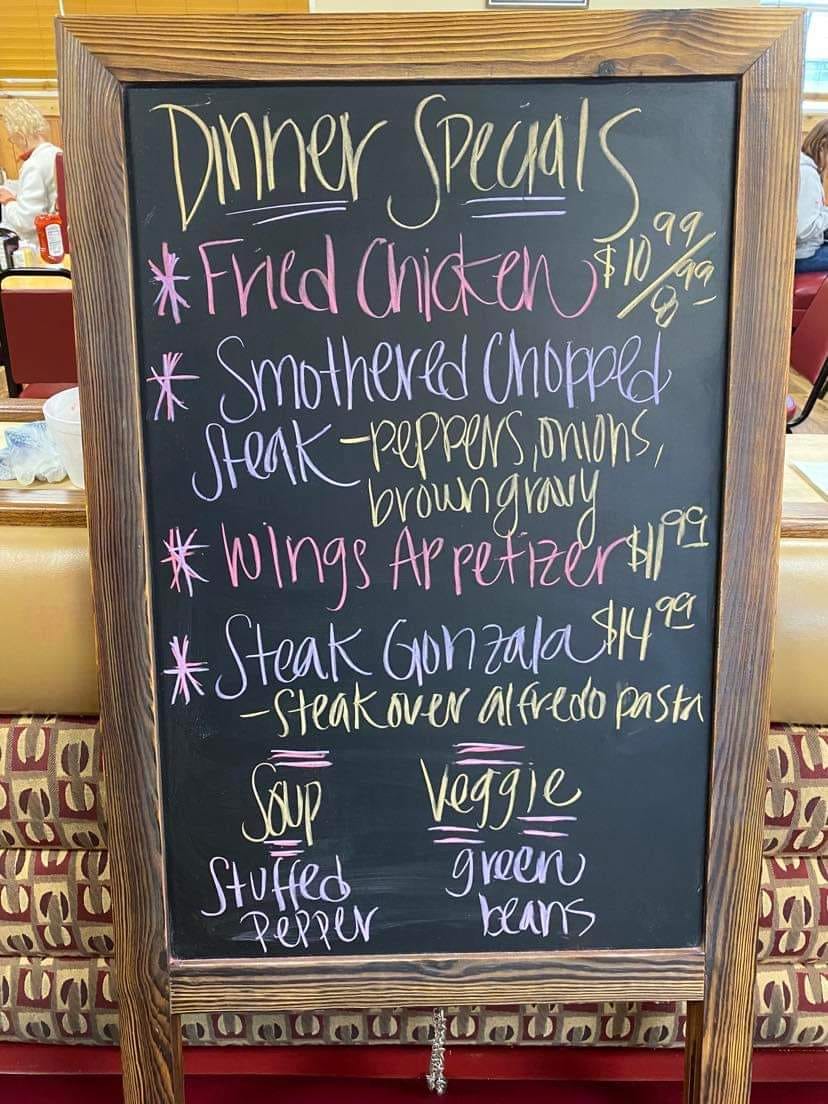 Dinner Specials
* Fried Chicken $10.99/8.99
* Smothered Chopped
Steak - peppers, onions,
brown gravy
* Wings Appetizer $11.99
* Steak Gonzala $14.99
- Steak over alfredo pasta
Soup
Stuffed
Pepper
Veggie
green
beans